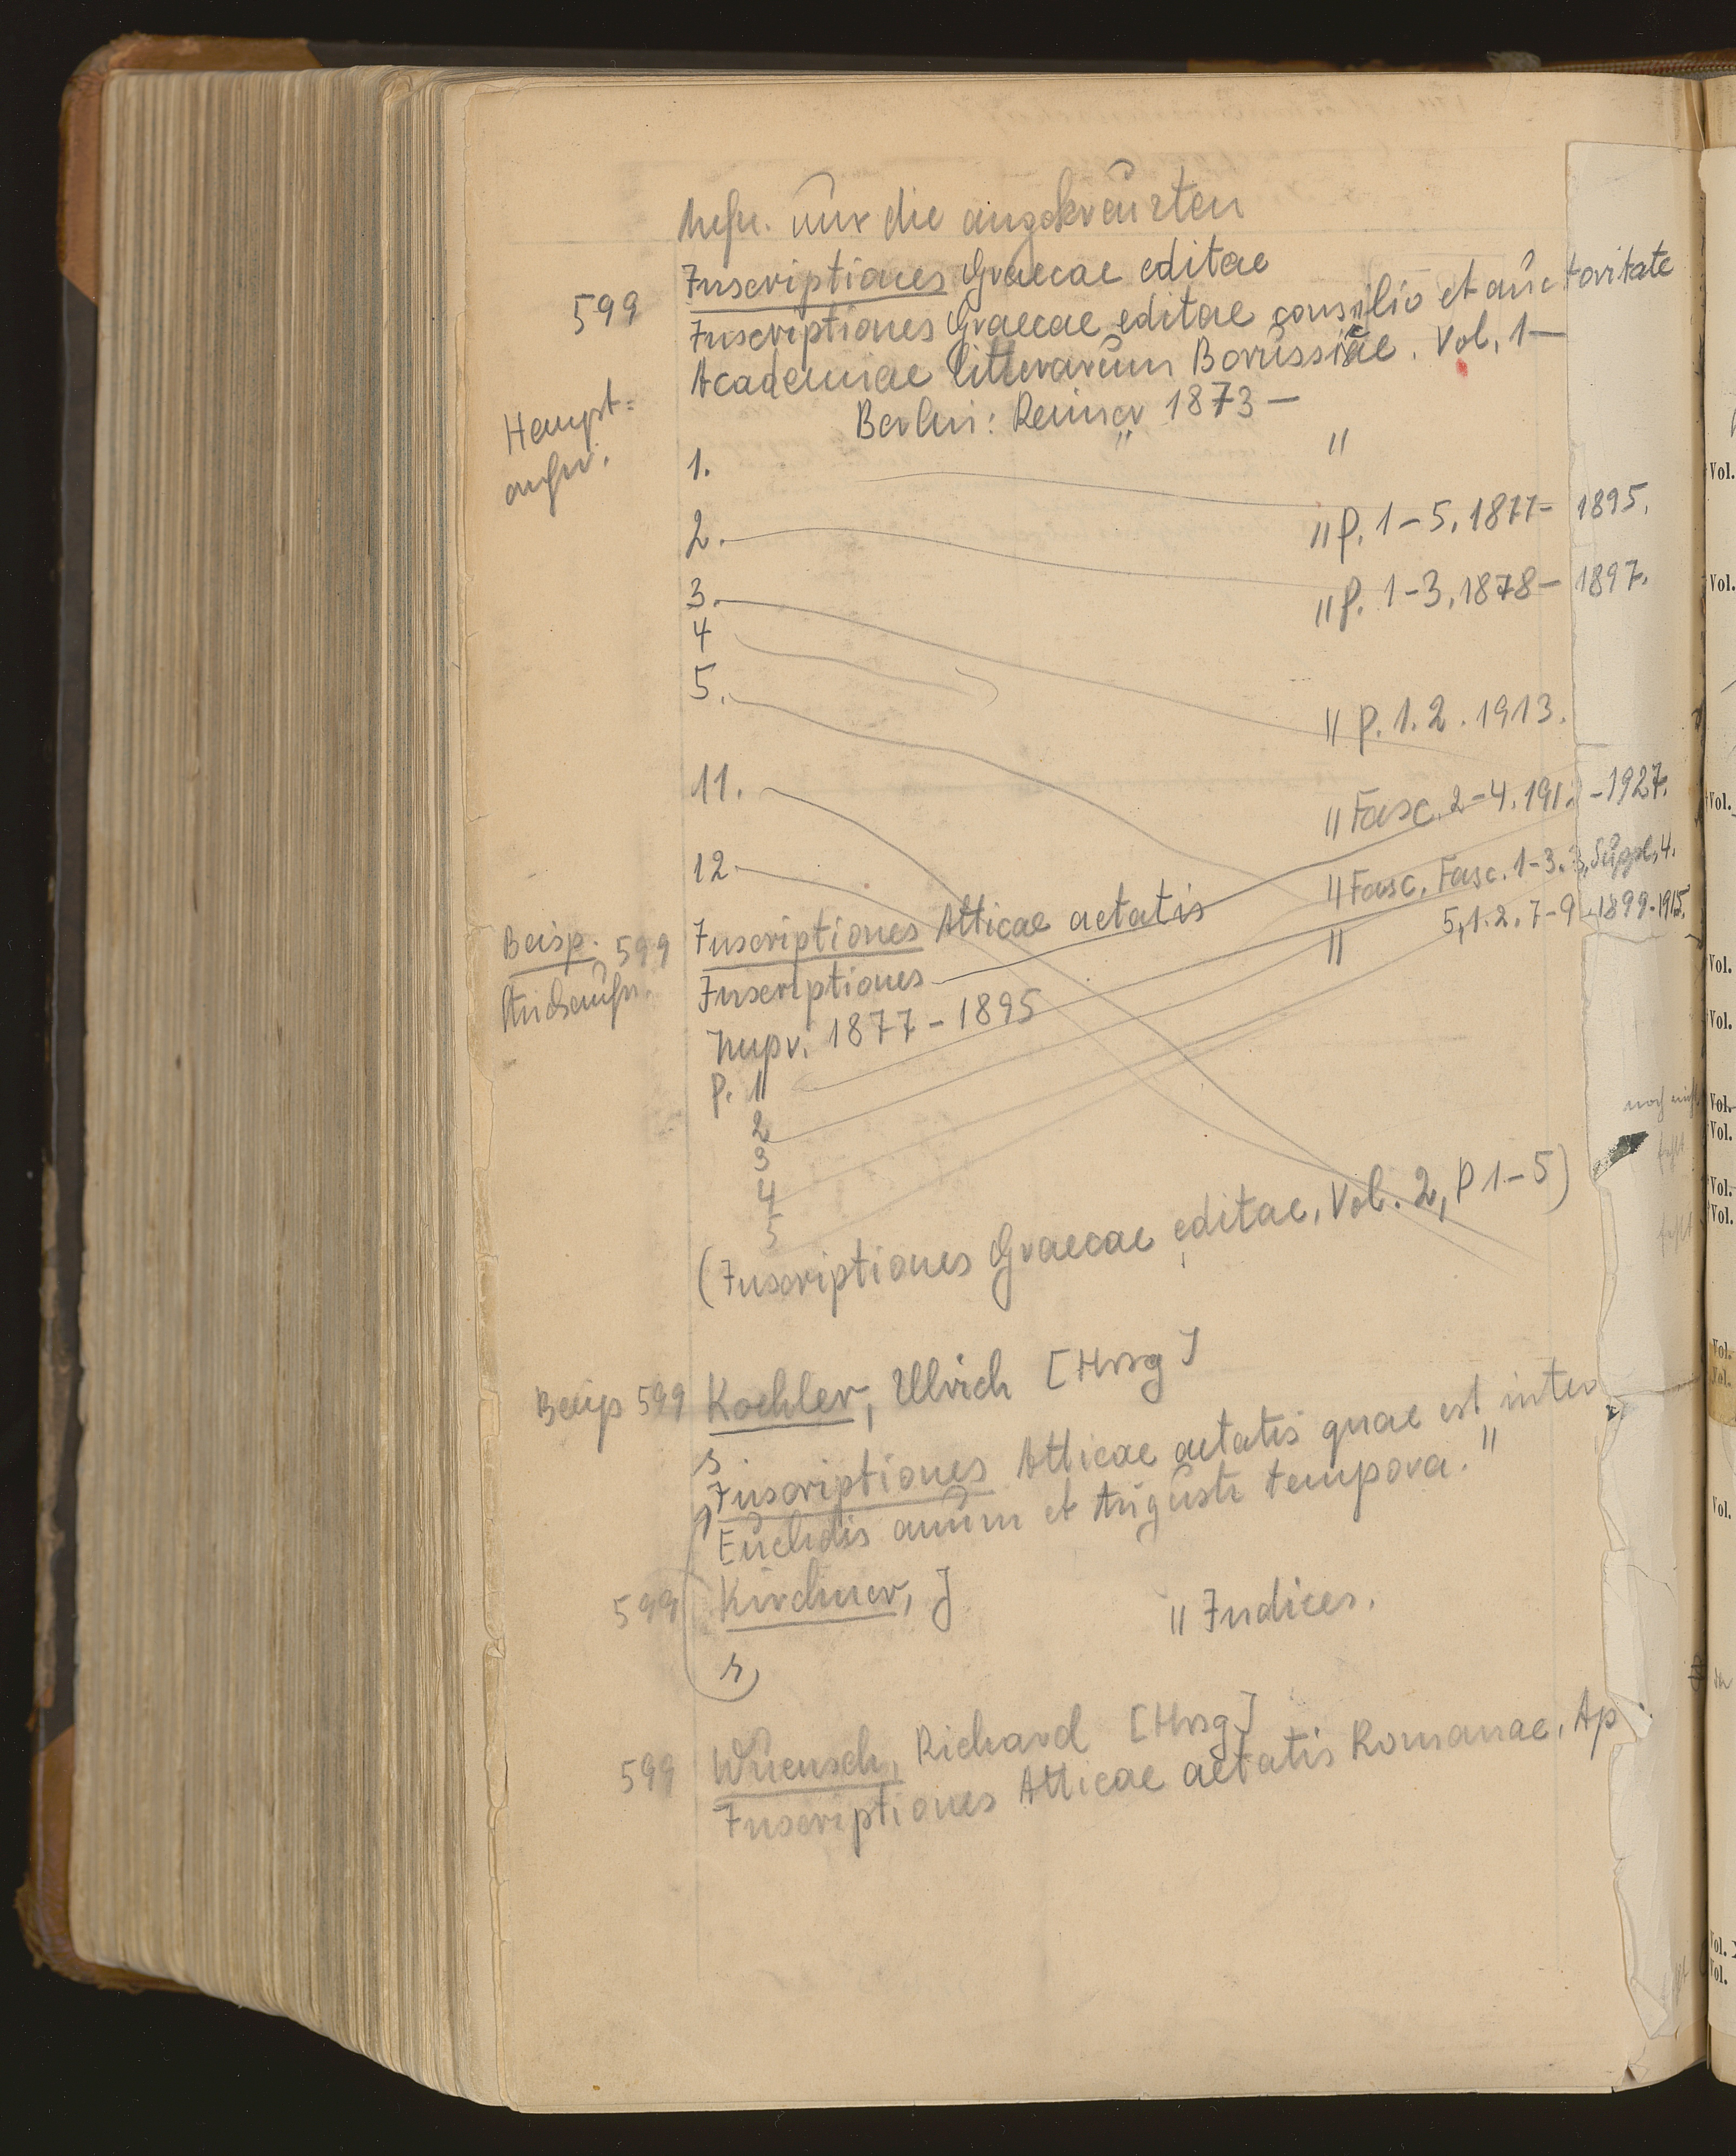 nur die angekreuzten
Inscriptiones Graecae editae
599
Inscriptiones Graecae editae consilio et auctoritate
Academiae litterarum Borussicae. Vol. 1—
Haupt=
aufn.
Berlin: Reimer 1873 —
1. "
2. " P. 1-5. 1877- 1895.
3. " P. 1-3. 1878- 1897.
4
5. " P. 1. 2. 1913.
11. " Fasc. 2-4. 191. -1927.
12. " Fasc. Fasc. 1-3. 3, Suppl. 4.
5, 1. 2. 7-9. 1899-1915.
"
Beisp. 599 Inscriptiones Atticae aetatis
Inscriptiones
1877-1895
P. 1
2
3
4
5
(Inscriptiones Graecae editae, Vol. 2, P 1-5)
Beisp 599 Koehler, Ulrich [Hrsg]
s
Inscriptiones Atticae aetatis quae est inter
Euclidis annum et Augusti tempora. "
599 Kirchner, J " Indices.
s
599 Wuensch, Richard [Hrsg]
Inscriptiones Atticae aetatis Romanae. Ap
noch nicht
fehlt
fehlt
Vol.
Vol.
Vol.
Vol.
Vol.
Vol.
Vol.
Vol.
Vol.
Vol.
Vol.
Vol.
Vol.
Vol.